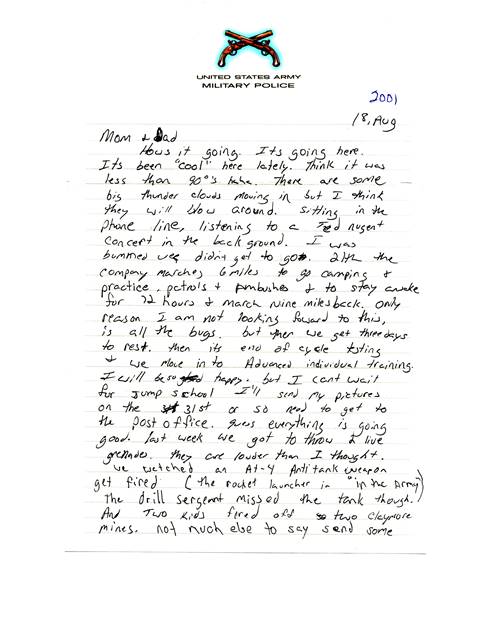 UNITED STATES ARMY
MILITARY POLICE
2001
18, Aug
Mom & Dad
Hows it going. Its going here.
Its been "cool" here lately. Think it was
less than 90°'s haha. There are some
big thunder clouds moving in but I think
they will blow around. Sitting in the
phone line, listening to a Ted nugent
Concert in the back ground. I was
bummed we didn't get to go. 24th the
company marches 6 miles to go camping &
practice. patrols & Ambushes & to stay awake
for 72 hours & march nine miles back. Only
reason I am not looking foward to this,
is all the bugs. but then we get three days
to rest. then its end of cycle testing
& we move in to Advanced individual training.
I will be so happy. but I cant wait
for Jump school I'll send my pictures
on the 31st or so need to get to
the post office. Guess everything is going
good. last week we got to throw 2 live
grenades. they are louder than I thought.
we watched an AT-4 Antitank weapon
get fired (the rocket launcher in "in the Army)
The drill sergeant missed the tank though.
And Two kids fired off two claymore
mines. not much else to say send some